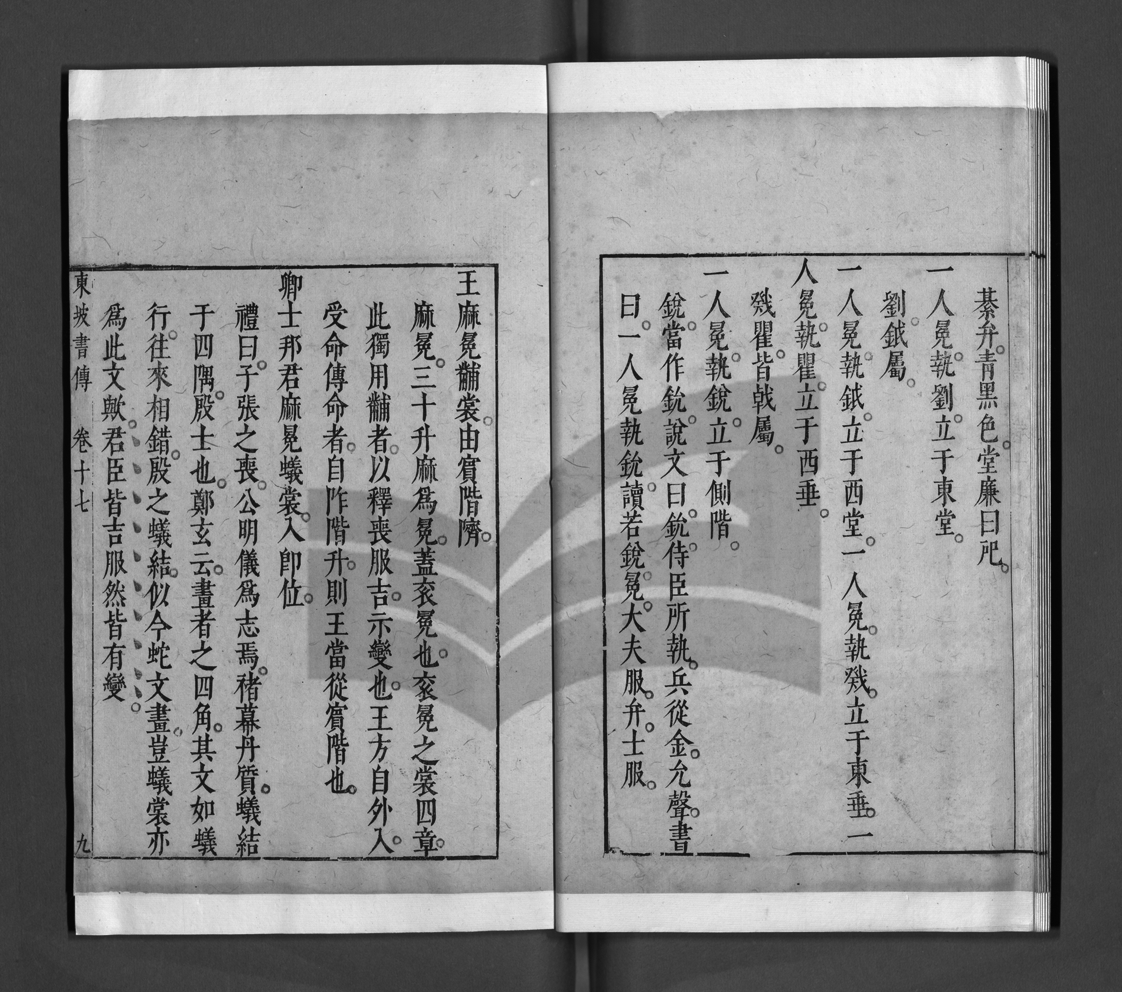 綦弁青黑色堂廉曰戺
一人冕執劉立于東堂
劉鉞屬
一人冕執鉞立于西堂一人冕執戣立于東垂一
人冕執瞿立于西垂
戣瞿皆戟屬
一人冕執銳立于側階
銳當作鈗說文曰鈗侍臣所執兵從金允聲書
曰一人冕執鈗讀若銳冕大夫服弁士服
王麻冕黼裳由賔階隮
麻冕三十升麻爲冕蓋衮冕也衮冕之裳四章
此獨用黼者以釋喪服吉示變也王方自外入
受命傳命者自阼階升則王當從賔階也
卿士邦君麻冕蟻裳入卽位
禮曰子張之喪公明儀爲志焉褚幕丹質蟻結
于四隅殷士也鄭玄云畫者之四角其文如蟻
行往來相錯殷之蟻結似今蛇文畫豈蟻裳亦
爲此文歟君臣皆吉服然皆有變
東坡書傳 卷十七 九